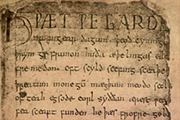 HǷÆT ǷE GARD
na ingear dagum þeod cyning
þrym ge frunon huða æþelingas ell
fre medon. oft scyld scefing sceaþe
þreatum monegū mægþum meodo setl
of teah egsode eorl syððan ærest ƿea
sceaft funden he þæs frofre ge